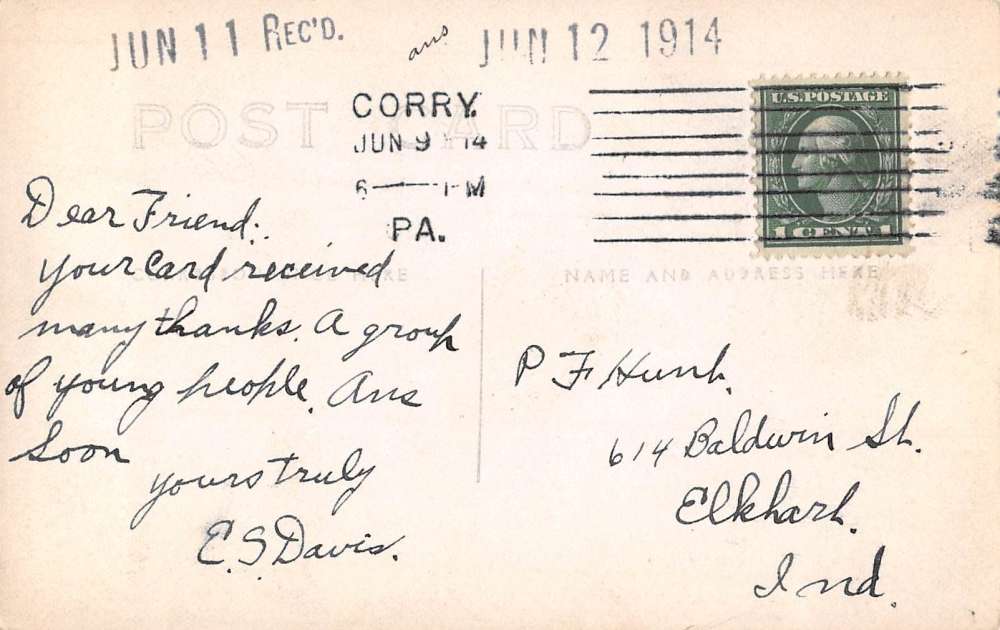 JUN 11 REC'D. ans JUN 12 1914
POST CARD
CORRY,
JUN 9 14
6 — PM
PA.
U.S. POSTAGE
1 CENT 1
NAME AND ADDRESS HERE
Dear Friend.
your Card received
many thanks. A group
of young people. Ans
Soon
yours truly
E.S. Davis.
P F Hunt.
614 Baldwin St.
Elkhart.
Ind.